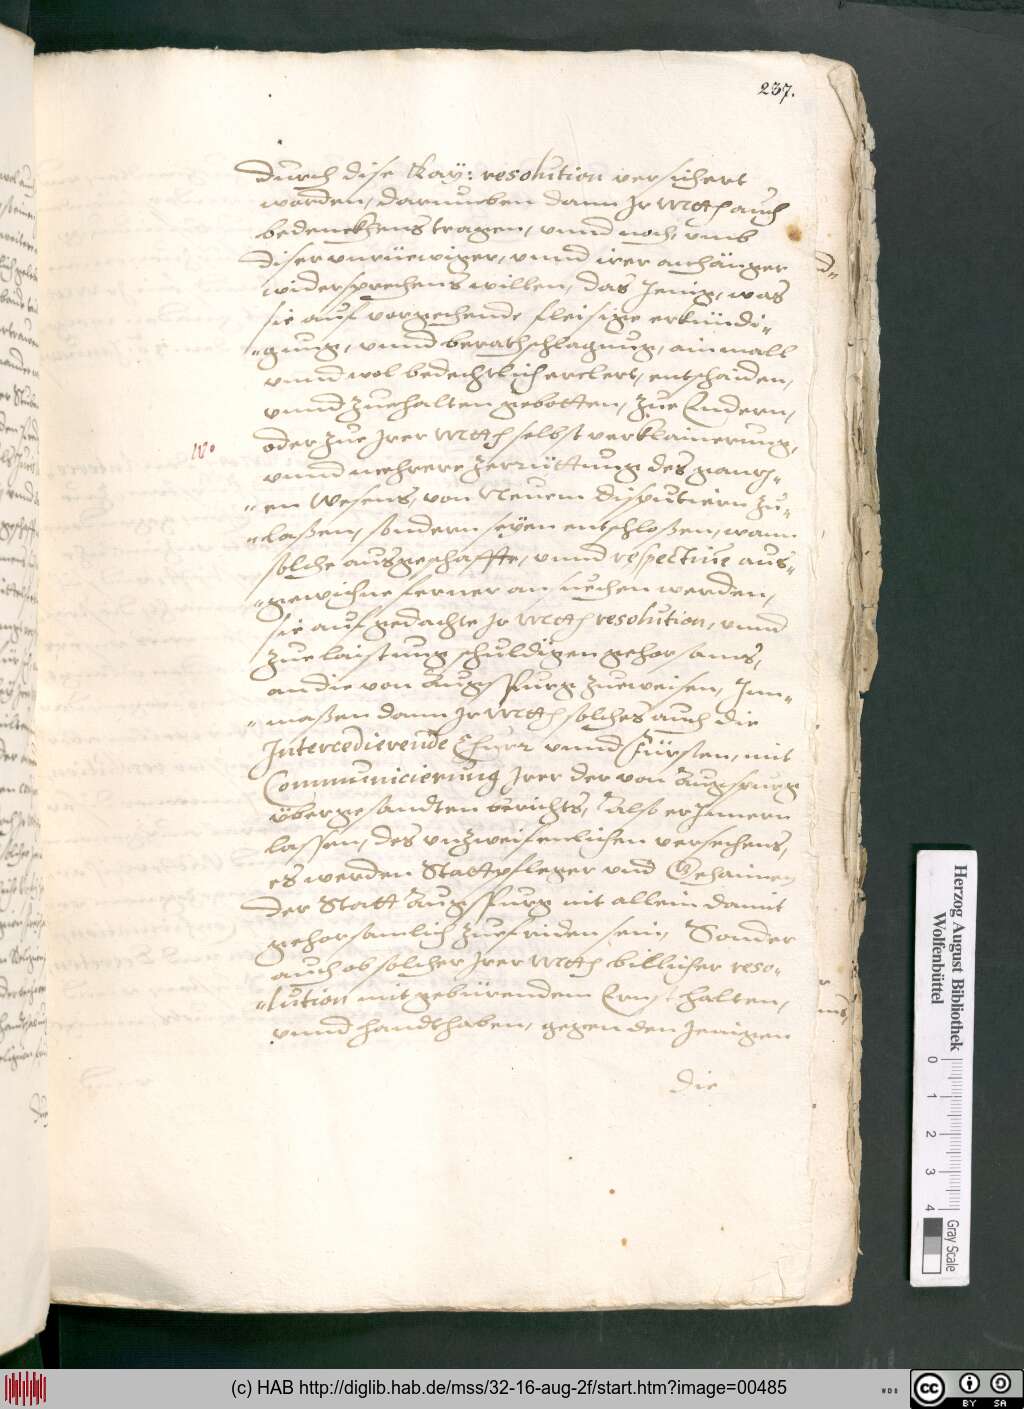 237.
durch dise Kay: resolution versichert
worden, darnneben dann Ir Mtt auch
bedenckhens tragen, vnnd noch, vmb
diser vnrüewiger, vnnd irer anhänger
widersprechens willen, das Jenig, was
sie auf vorgehende fleisige erkundi-
-gung, vnnd berathschlagung, ainmall
vnnd wol bedechtlich erclert, entschaiden,
vnnd zuehalten gebotten, zue Endern,
oder zue Irer Mtt selbst verklainerung,
vnnd mehrere zerrüttung des gantz-
-en Wesens, von Neuem disputiern zu-
-laßen, sondern seyen entschloßen, wann
solche ausgeschaffte, vnnd respective aus-
-gewichne ferner ansuechen werden,
sie auf gedachte Ir Mtt resolution, vnnd
zue laistung schuldigen gehorsams,
an die von Augspurg zueweisen, Inn-
-maßen dann Ir Mtt solches auch die
Intercedierende Churr vnnd Fürsten, mit
Communicierung Irer der von Augspurg
übergesandten berichts, also erJnnern
lassen, des vnzweifenlichen versehens,
es werden Stattpfleger vnd Gehaimen
der Statt Augspurg nit allein damit
gehorsamlich zuefriden sein, Sonder
auch ob solcher Irer Mtt billicher reso-
-lution mit gebürendem Ernst halten,
vnnd handthaben, gegen den Jenigen
die
Herzog August Bibliothek
Wolfenbüttel
0 1 2 3 4
Gray Scale
(c) HAB http://diglib.hab.de/mss/32-16-aug-2f/start.htm?image=00485
WDB
cc
BY SA